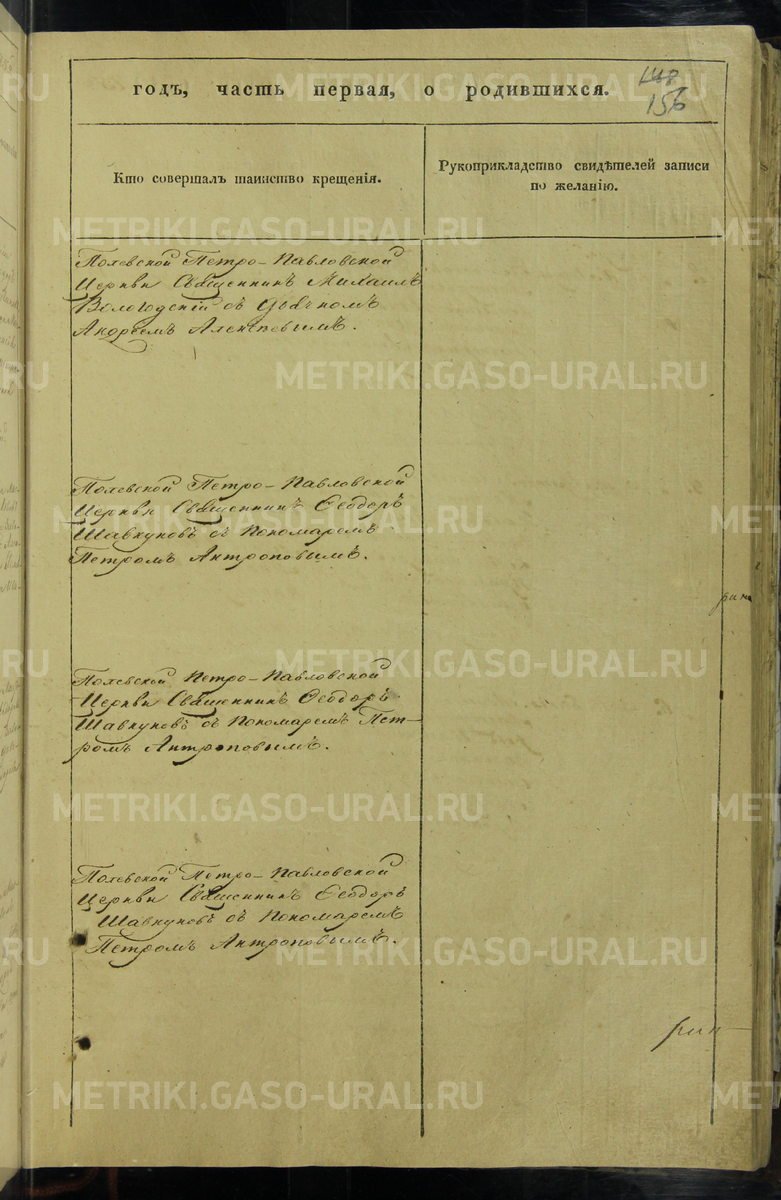 годъ, часть первая, о родившихся.
148
156
Кто совершалъ таинство крещенія.
Рукоприкладство свидѣтелей записи
по желанію.
Полевской Петро-Павловской
Церкви Священникъ Михаилъ
Вологодскій съ
Андреемъ Алексѣевымъ.
Полевской Петро-Павловской
Церкви Священникъ Ѳеодоръ
Шавкуновъ съ Пономаремъ
Петромъ Антроповымъ.
Полевской Петро-Павловской
Церкви Священникъ Ѳеодоръ
Шавкуновъ съ Пономаремъ Пет-
ромъ Антроповымъ.
Полевской Петро-Павловской
Церкви Священникъ Ѳеодоръ
Шавкуновъ съ Пономаремъ
Петромъ Антроповымъ.
METRIKI.GASO-URAL.RU